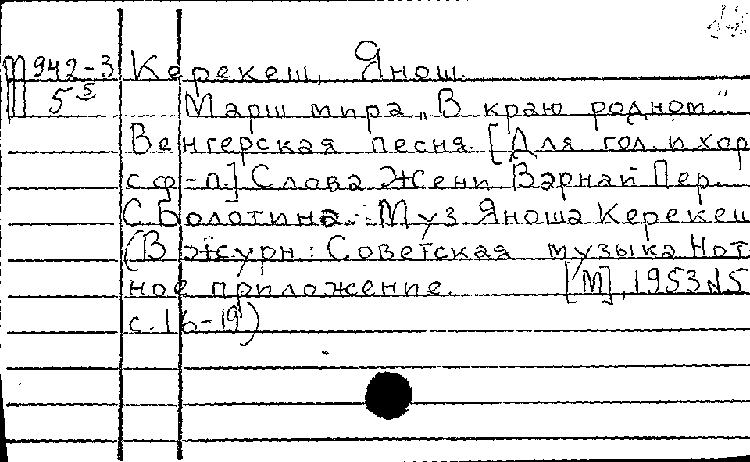 П942-3 Керекеш, Янош.
5 5 Марш мира „В краю родном“
Венгерская песня. [Для гол. и хор
с ф-п.] Слова Жени Варнай Пер.
С. Болотина. Муз. Яноша Керекеш
(В журн: Советская музыка Нот
ное приложение. [М], 1953 №5
с. 16-19)